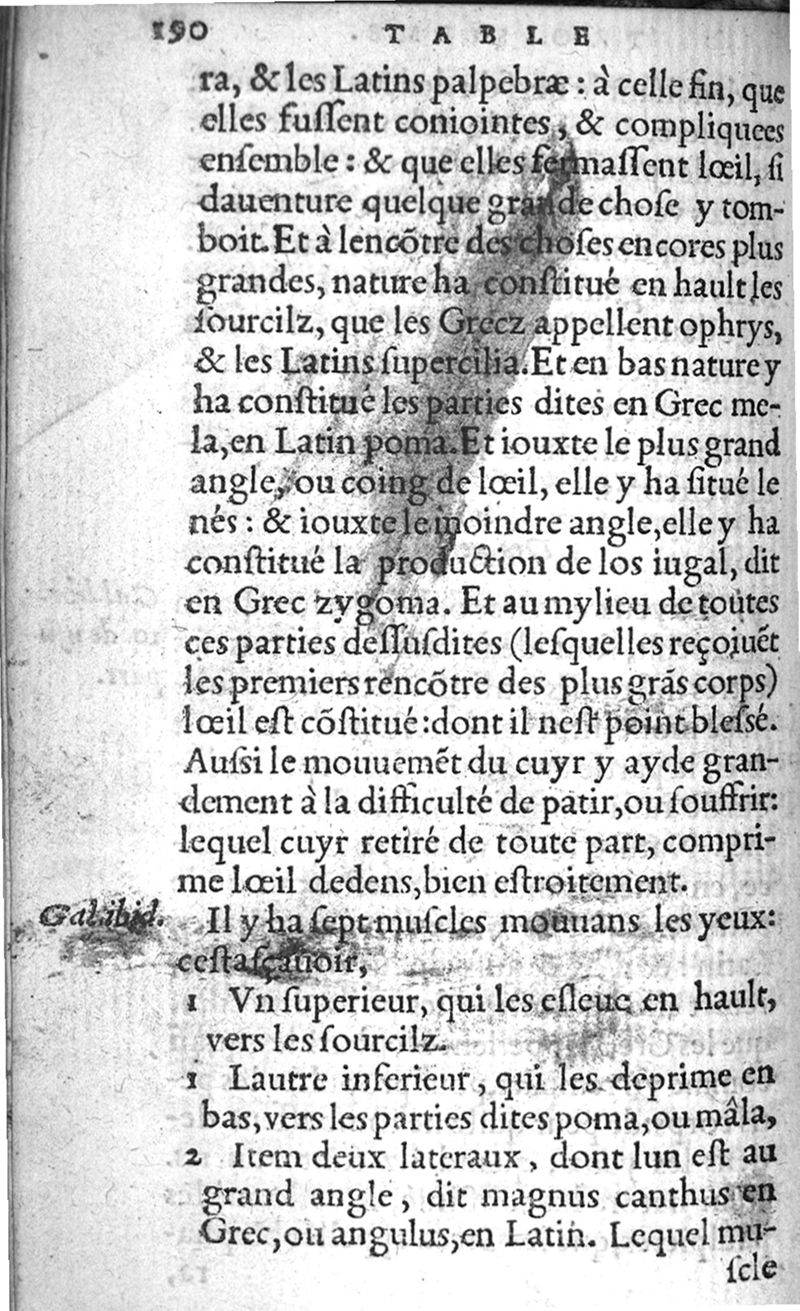 190 TABLE
ra, & les Latins palpebræ : à celle fin, que
elles fuſſent coniointes, & compliquees
enſemble : & que elles fermaſſent lœil, ſi
dauenture quelque grande choſe y tom-
boit. Et à lencõtre des choſes encores plus
grandes, nature ha conſtitué en hault les
ſourcilz, que les Grecz appellent ophrys,
& les Latins ſupercilia. Et en bas nature y
ha conſtitué les parties dites en Grec me-
la, en Latin poma. Et iouxte le plus grand
angle, ou coing de lœil, elle y ha ſitué le
nés : & iouxte le moindre angle, elle y ha
conſtitué la production de los iugal, dit
en Grec zygoma. Et au mylieu de toutes
ces parties deſſuſdites (leſquelles reçoiuẽt
les premiers rencõtre des plus grãs corps)
lœil eſt cõſtitué : dont il neſt point bleſsé.
Auſsi le mouuemẽt du cuyr y ayde gran-
dement à la difficulté de patir, ou ſouffrir:
lequel cuyr retiré de toute part, compri-
me lœil dedens, bien eſtroitement.
Gal. ibid. Il y ha ſept muſcles mouuans les yeux:
ceſtaſçauoir,
1 Vn ſuperieur, qui les eſleue en hault,
vers les ſourcilz.
1 Lautre inferieur, qui les deprime en
bas, vers les parties dites poma, ou mâla,
2 Item deux lateraux, dont lun eſt au
grand angle, dit magnus canthus en
Grec, ou angulus, en Latin. Lequel mu-
ſcle